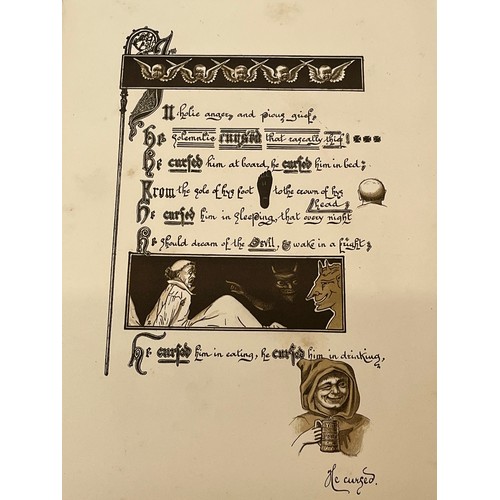 In holie anger, and pious grief,
He solemnlie cursed that rascally thief!
He cursed him at board, he cursed him in bed;
From the sole of hys foot to the crown of hys head;
He cursed him in sleeping, that every night
He should dream of the Devil, & wake in a fright;
He cursed him in eating, he cursed him in drinking,
He cursed.